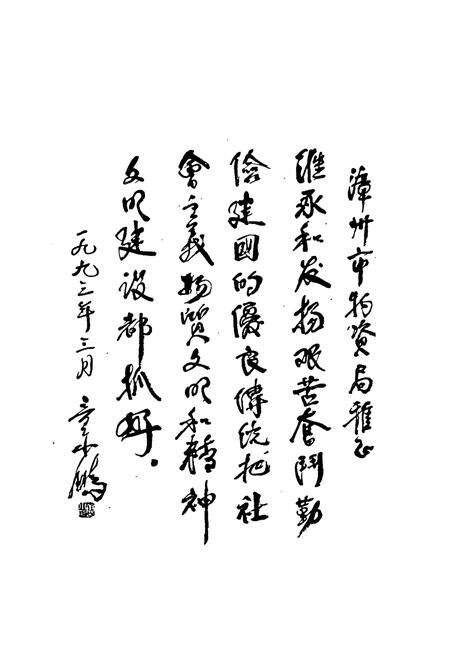 漳州市物资局雅正
继承和发扬艰苦奋鬥勤
俭建國的優良傳统把社
會主義物質文明和精神
文明建设都抓好。
一九九三年三月